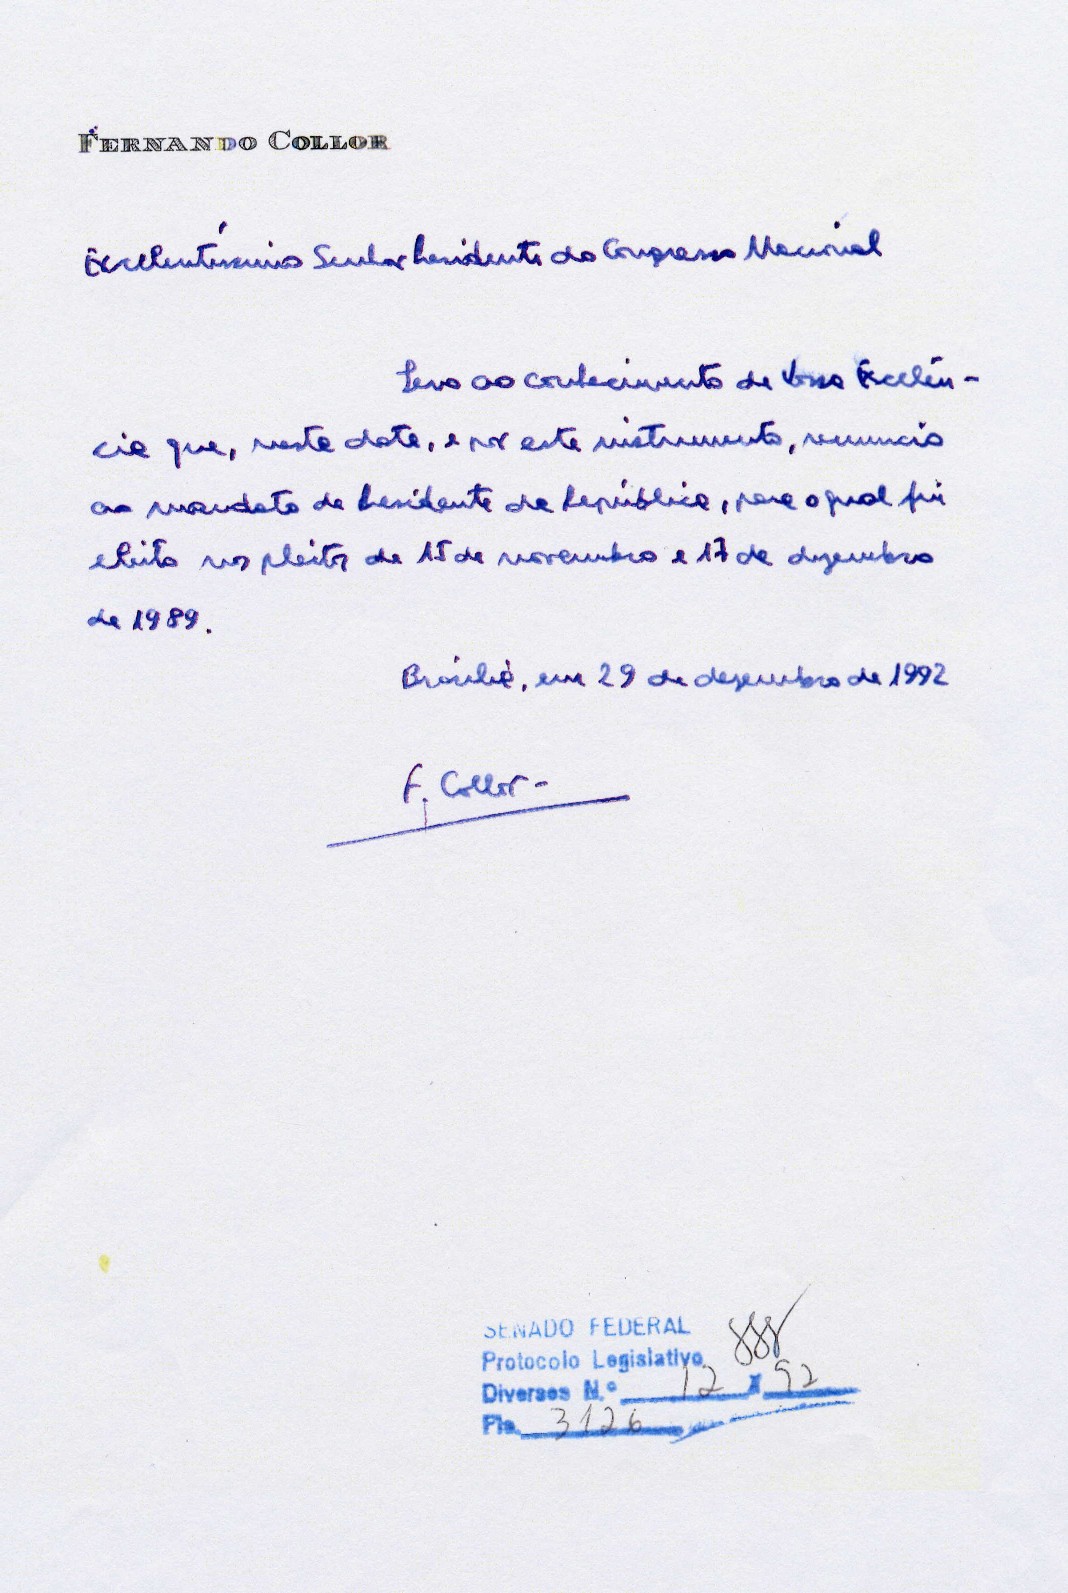 FERNANDO COLLOR
Excelentíssimo Senhor Presidente do Congresso Nacional
Levo ao conhecimento de Vossa Excelên-
cia que, nesta data, e por este instrumento, renuncio
ao mandato de Presidente da República, para o qual fui
eleito nos pleitos de 15 de novembro e 17 de dezembro
de 1989.
Brasília, em 29 de dezembro de 1992
F. Collor-
SENADO FEDERAL
Protocolo Legislativo
Diversos N.º 12 / 92
Fls. 3126